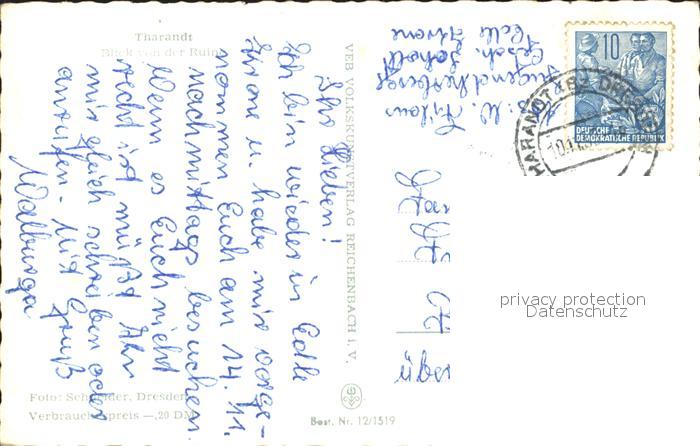 Tharandt
Blick von der Ruine
Ihr Lieben!
Ich bin wieder in Edle
Krone u. habe mir vorge-
nommen Euch am 14. 11.
nachmittags besuchen.
Wenn es Euch nicht
recht ist müßt Ihr
mir gleich schreiben oder
anrufen. Mit Gruß
Walburga
Foto: Schneider, Dresden
Verbraucherpreis —,20 DM
VEB VOLKSKUNSTVERLAG REICHENBACH i. V.
Best. Nr. 12/1519
Jugendherberge
Gesch. Scholl
Edle Krone
10
DEUTSCHE
DEMOKRATISCHE REPUBLIK
THARANDT (BZ DRESDEN)
privacy protection
Datenschutz